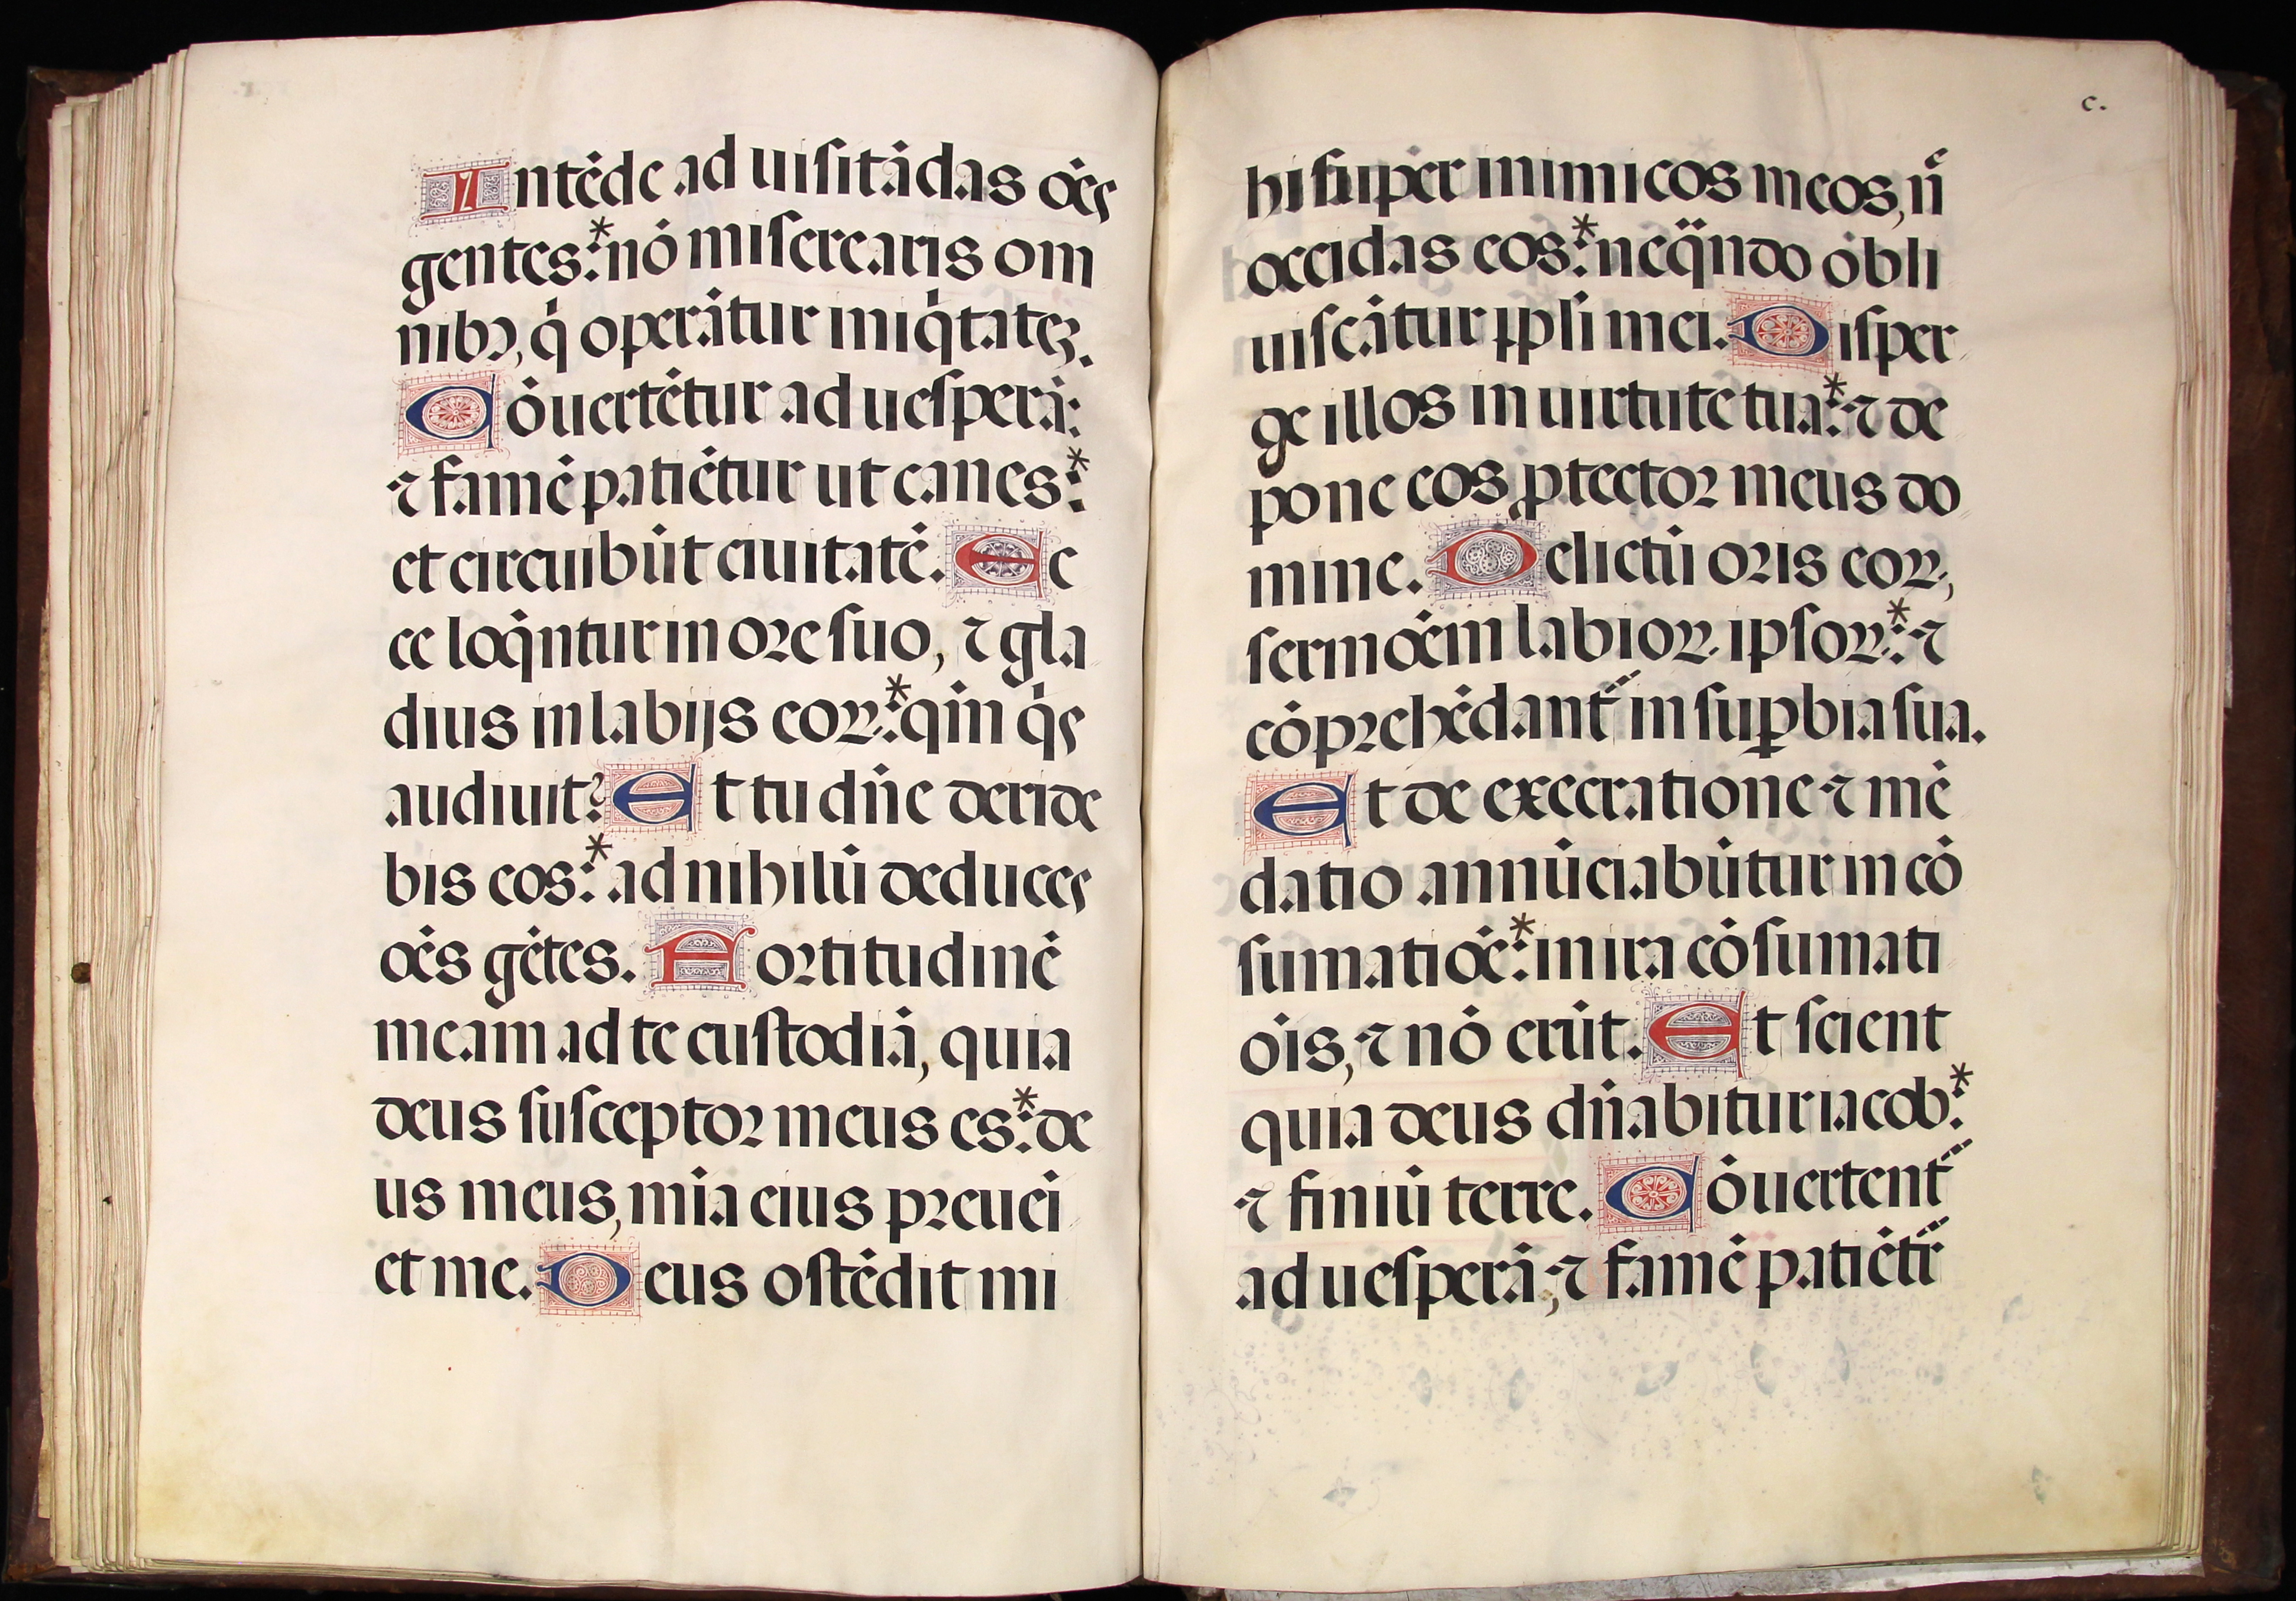 Intēde ad uisitādas oēs
gentes:* nō miserearis om
nibꝰ, q̇ operātur iniq̇tatēꝫ.
Cōuertētur ad uesperā:
⁊ famē patiētur ut canes:*
et circuibūt ciuitatē. Ec
ce loq̄ntur in ore suo, ⁊ gla
dius in labijs eoꝝ:* qm̄ q̇s
audiuit? Et tu dn̄e deride
bis eos:* ad nihilū deduces
oēs gētes. Fortitudinē
meam ad te custodiā, quia
deus susceptor meus es:* de
us meus, mīa eius preuei
et me. Deus ostēdit mi
c.
hi super inimicos meos, nē
occidas eos:* neqn̄do obli
uiscātur ppl̄i mei. Disper
ge illos in uirtute tua:* ⁊ de
pone eos ꝓtector meus do
mine. Delictū oris eoꝝ,
sermoēm labioꝝ ipsoꝝ:* ⁊
cōprehēdant᷑ in suꝑbia sua.
Et de execratione ⁊ mē
datio annūciabūtur in cō
sumatiōe:* in ira cōsumati
ōis, ⁊ nō erūt. Et scient
quia deus dn̄abitur iacob:*
⁊ finiū terre. Cōuertent᷑
ad uesperā, ⁊ famē patiēt᷑r